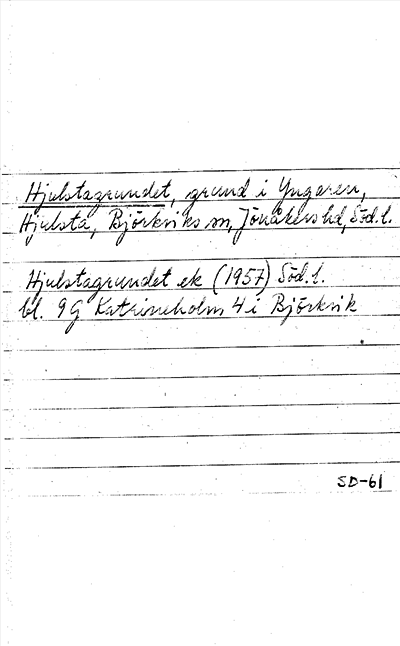 Hjulstagrundet, grund i Yngaren,
Hjulsta, Björkviks sn, Jönåkers hd, Söd. l.
Hjulstagrundet ek (1957) Söd. l.
bl. 9G Katrineholm 4 i Björkvik
SD-61